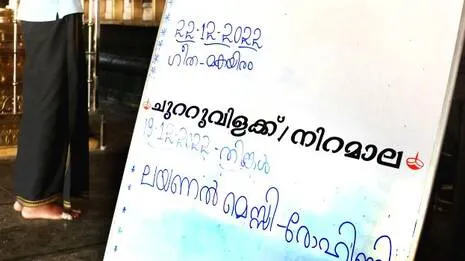 22-12-2022
ഗീത-മകയിരം
ചുററുവിളക്ക്/നിറമാല
19-12-2022-തിങ്കൾ
ലയണൽ മെസ്സി-രോഹിണി